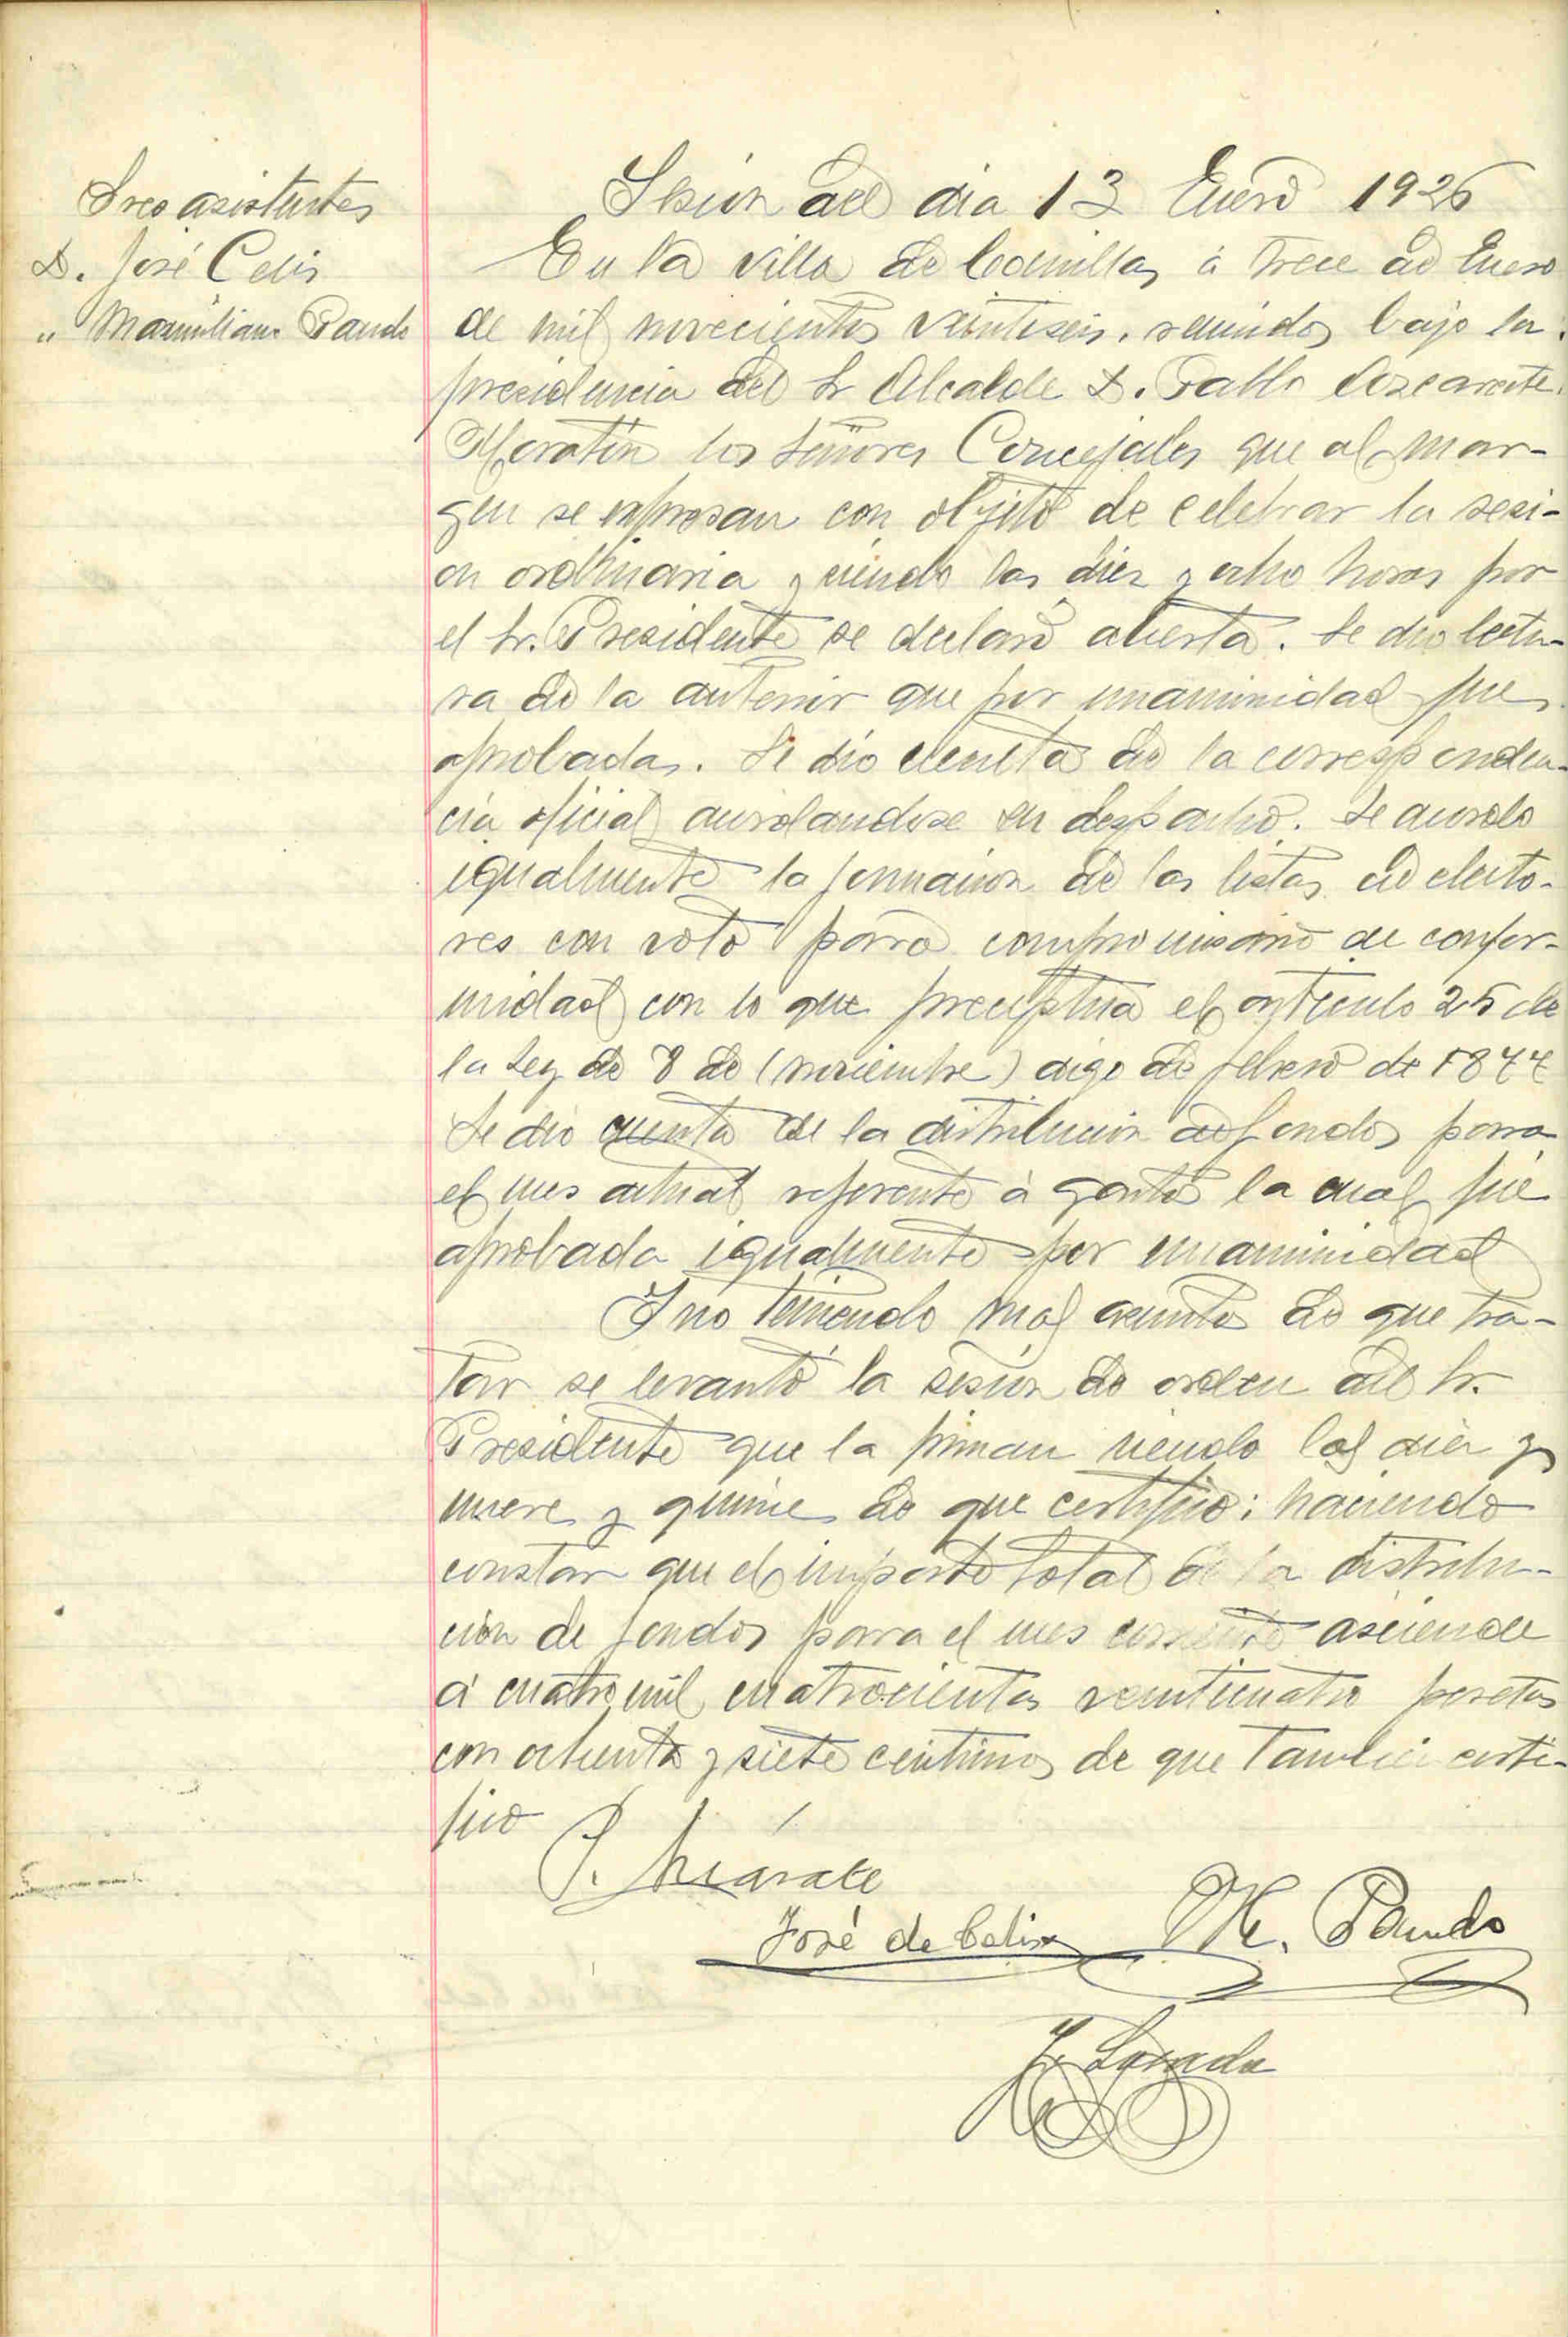 Sres asistentes
D. José Celis
" Maximiliano Pando
Sesión del dia 13 Enero 1926
En la villa de Comillas á trece de Enero
de mil novecientos veintiseis, reunidos bajo la
presidencia del Sr Alcalde D. Pablo Azcarate
Moratín los Señores Concejales que al mar-
gen se expresan con objeto de celebrar la sesi-
on ordinaria y siendo las diez y ocho horas por
el Sr. Presidente se declaró abierta. Se dio lectu-
ra de la anterior que por unanimidad fue
aprobada. Se dio cuenta de la corresponden-
cia oficial acordandose su despacho. Se acordo
igualmente la formacion de las listas de electo-
res con voto para compromisario de confor-
midad con lo que preceptua el articulo 25 de
la Ley de 8 de (noviembre) digo de febrero de 1877
Se dio cuenta de la distribucion de fondos para
el mes actual referente à gastos la cual fue
aprobada igualmente por unanimidad
Y no teniendo mas asuntos de que tra-
tar se levantó la sesion de orden del Sr.
Presidente que la firman siendo las diez y
nueve y quince de que certifico: haciendo
constar que el importe total de la distribu-
ción de fondos para el mes corriente asciende
á cuatro mil cuatrocientas veinticuatro pesetas
con ochenta y siete centimos de que tambien certi-
fico
P.
José de Celis M. Pando